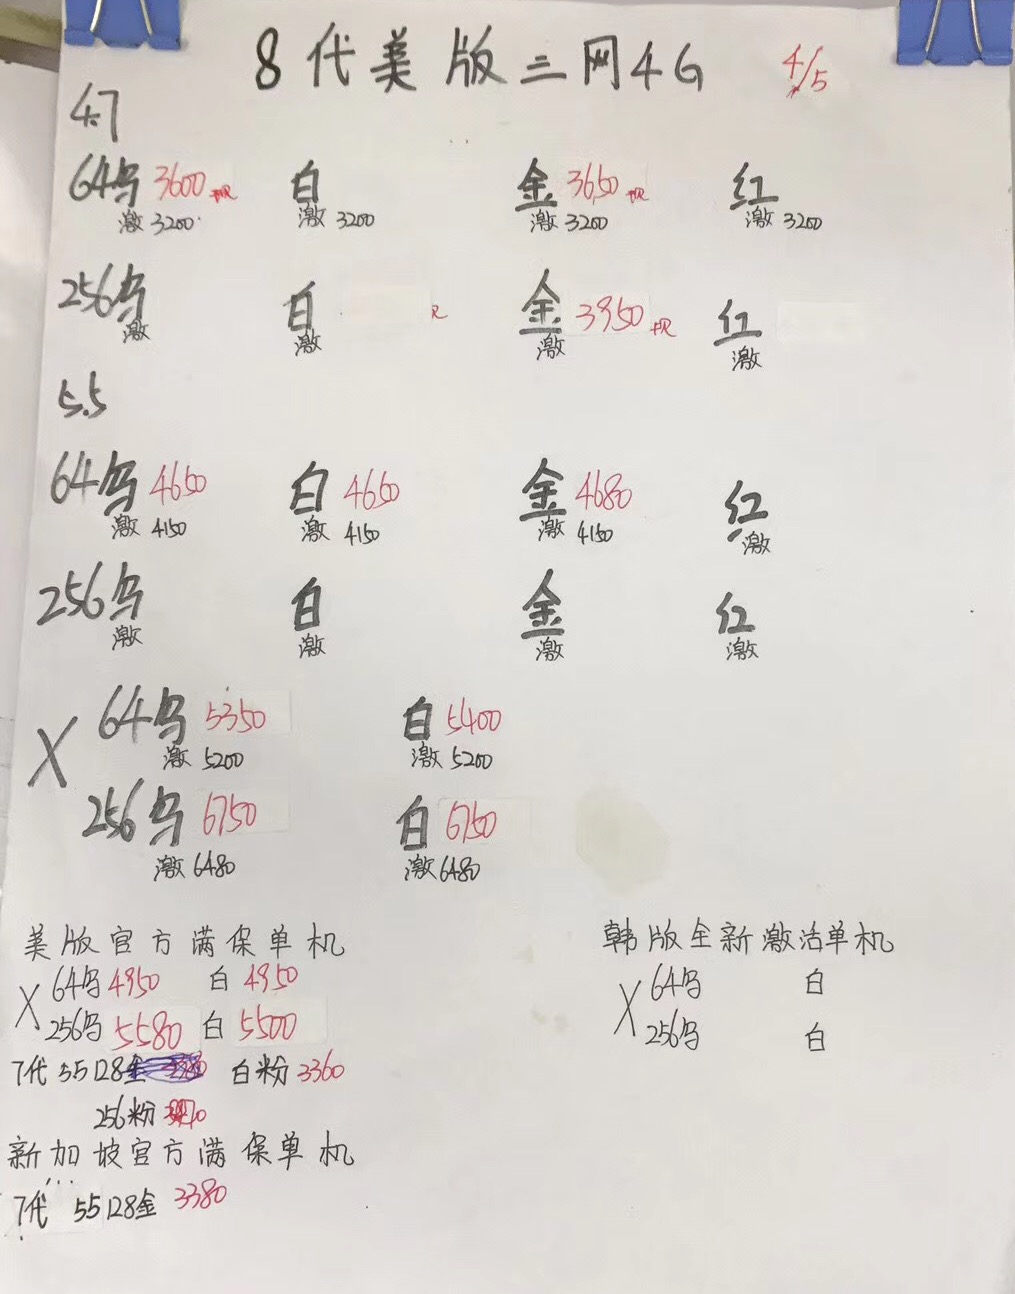 8代美版三网4G 4/5
4.7
64乌 3600 白 金 3650 红
激 3200 激 3200 激 3200 激 3200
256乌 白 R 金 3950 红
激 激 激 激
5.5
64乌 4650 白 4650 金 4680 红
激 4150 激 4150 激 4150 激
256乌 白 金 红
激 激 激 激
X 64乌 5350 白 5400
激 5200 激 5200
256乌 6750 白 6750
激 6480 激 6480
美版官方满保单机
X 64乌 4950 白 4950
256乌 5580 白 5500
7代 55 128金 白粉 3360
256粉
新加坡官方满保单机
7代 55 128金 3380
韩版全新激活单机
X 64乌 白
256乌 白